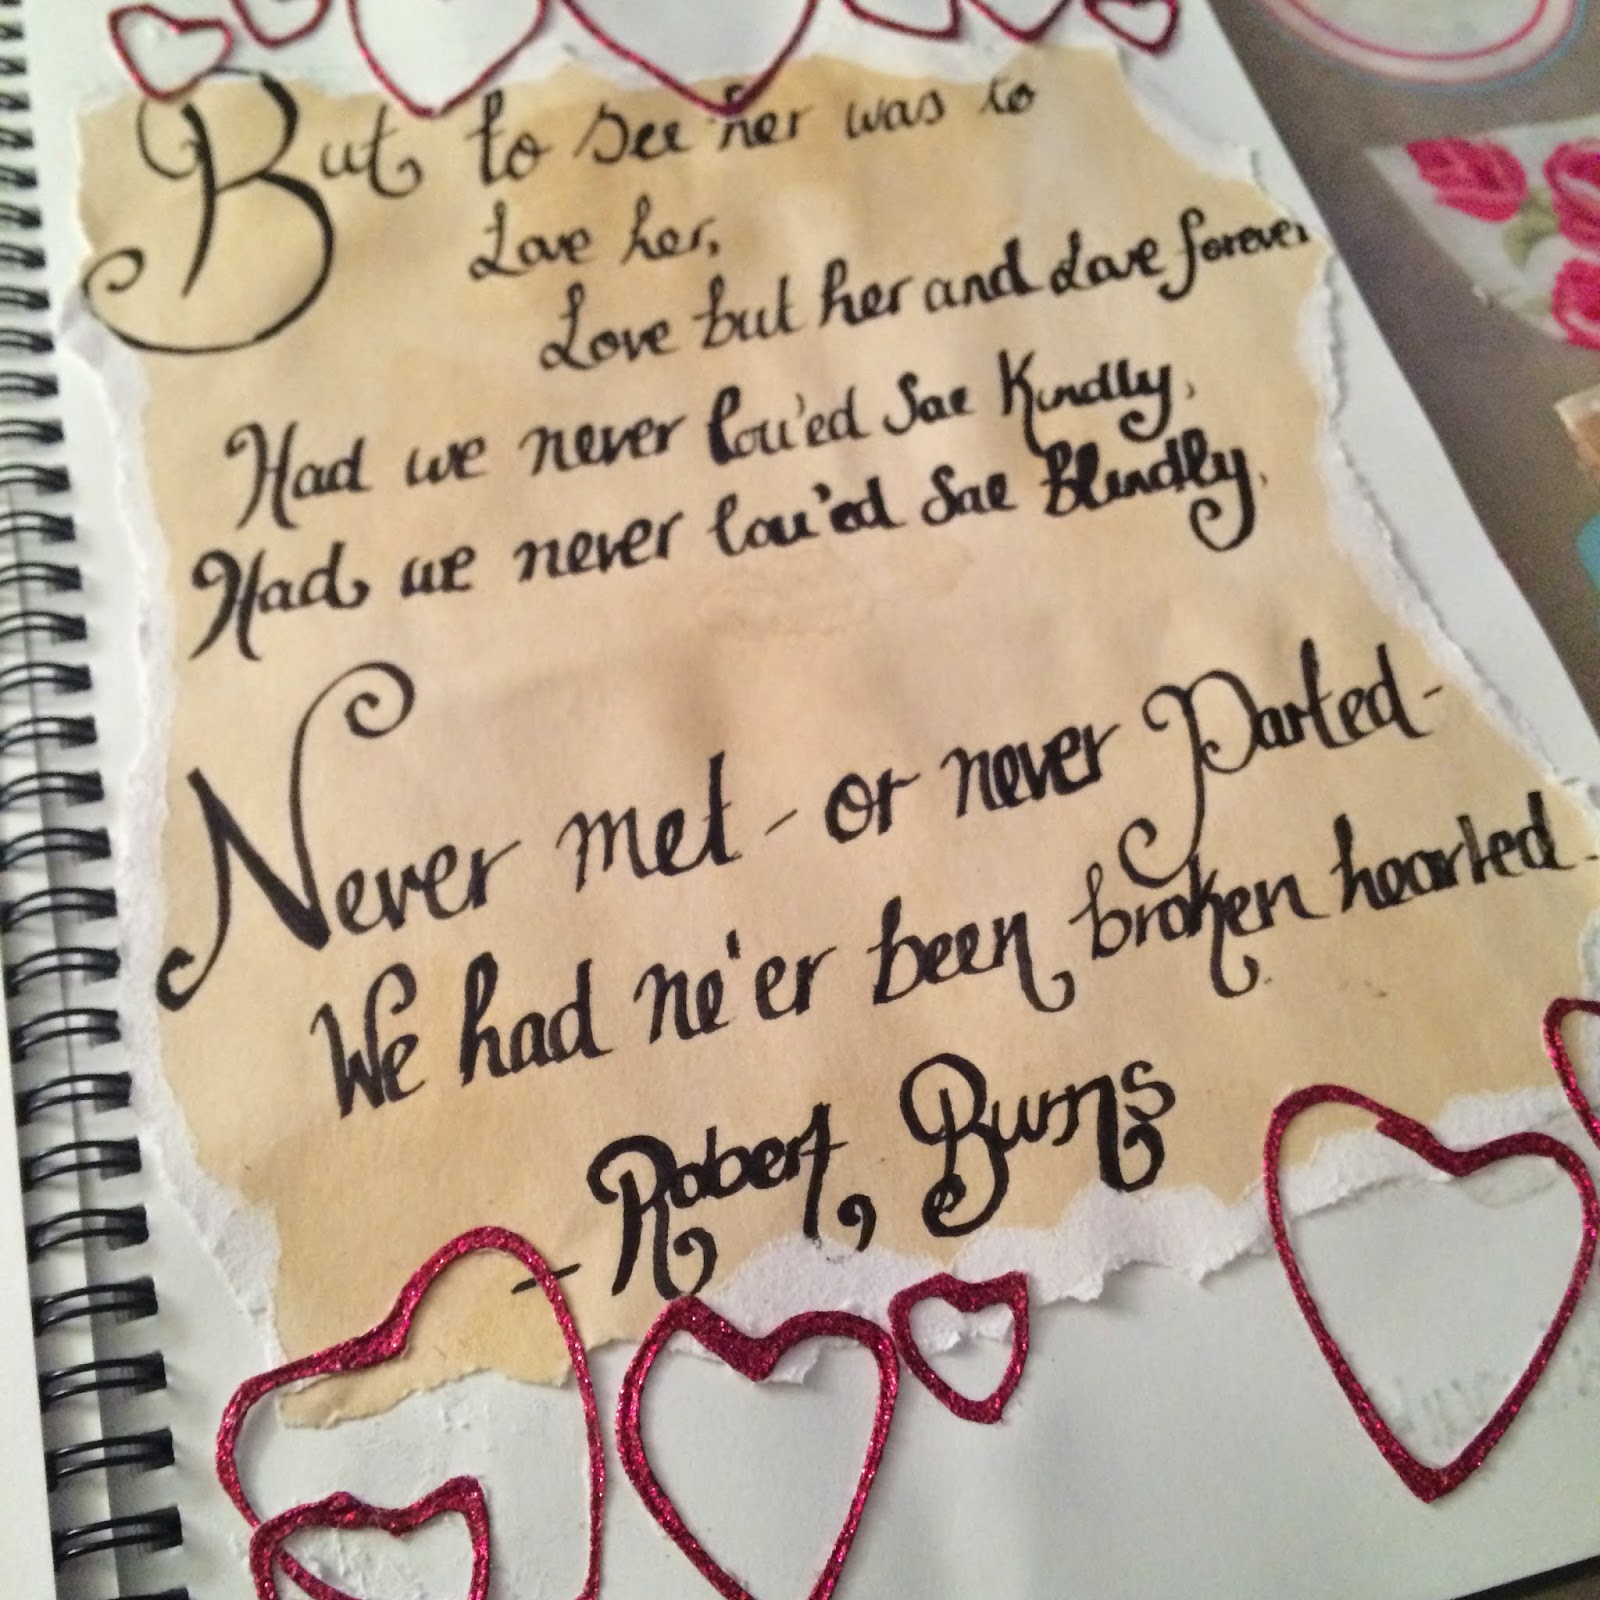 But to see her was to
Love her,
Love but her and Love forever
Had we never lou'ed Sae Kindly,
Had we never lou'ed Sae Blindly,
Never met - or never Parted -
We had ne'er been broken hearted.
- Robert Burns